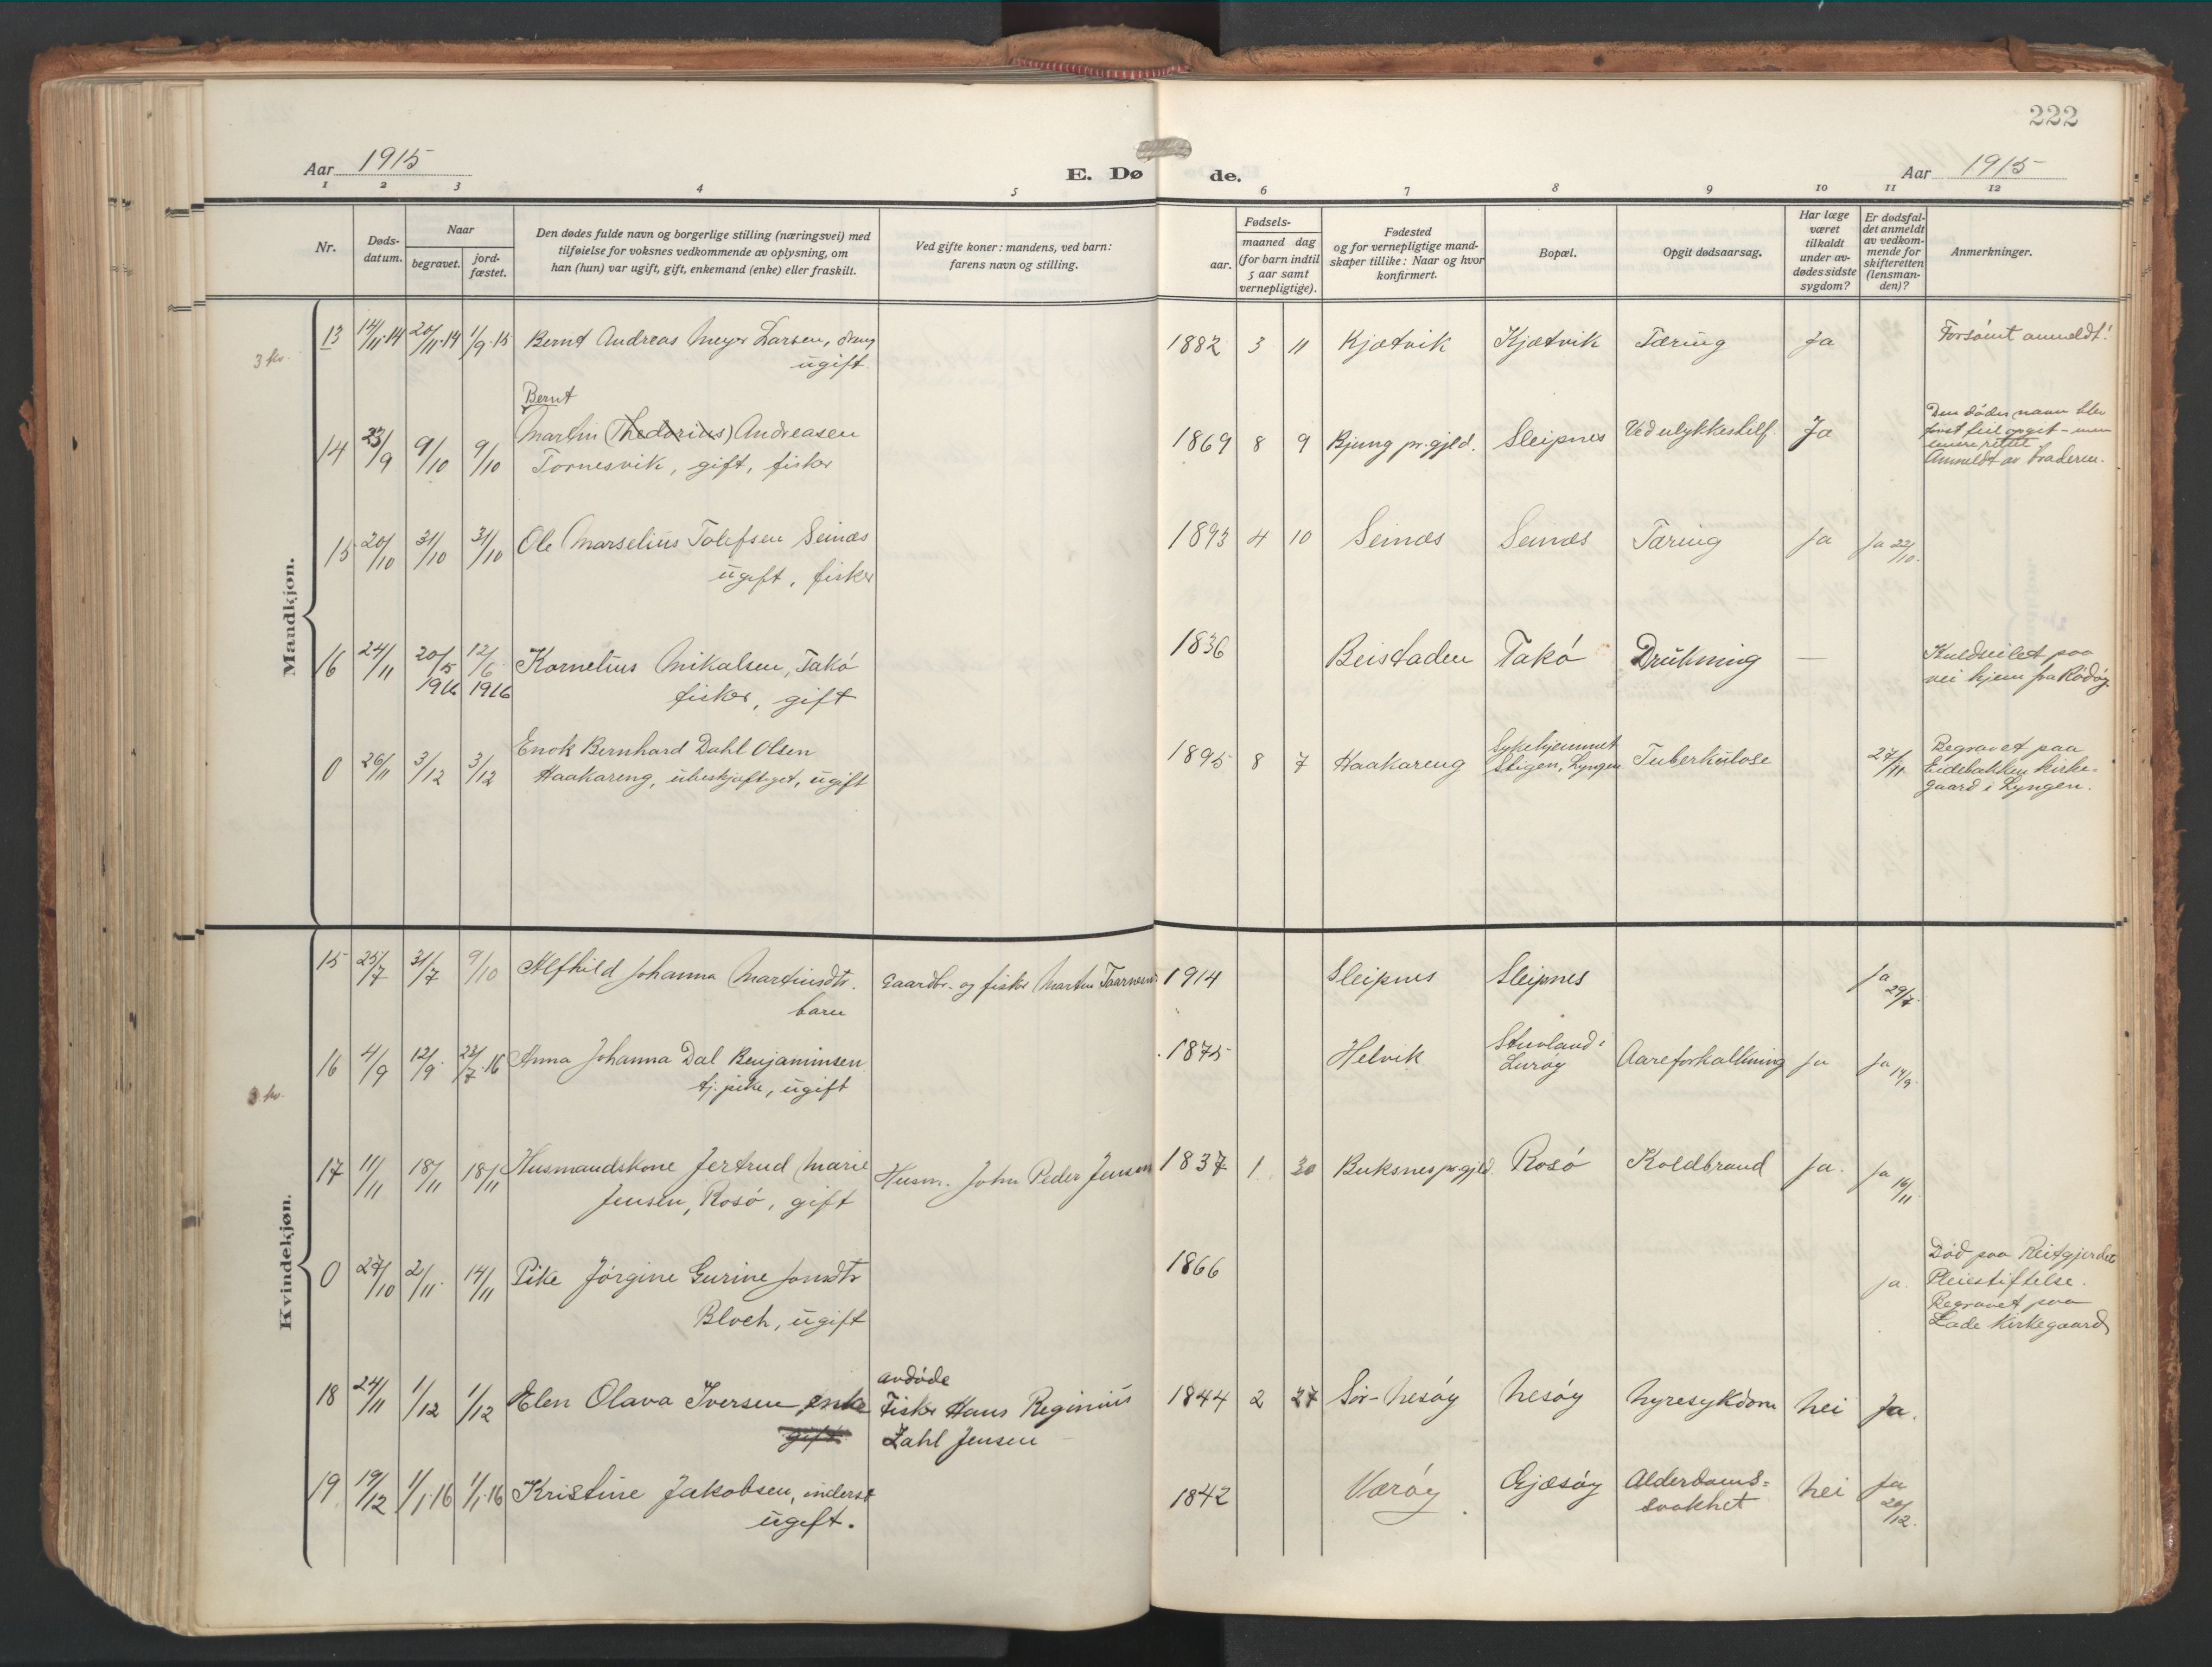 222
Aar 1915
E. Døde.
Aar 1915
1 2 3 4 5 6 7 8 9 10 11 12
Nr.
Døds-
datum.
Naar
begravet.
jord-
fæstet.
Den dødes fulde navn og borgerlige stilling (næringsvei) med
tilføielse for voksnes vedkommende av oplysning, om
han (hun) var ugift, gift, enkemand (enke) eller fraskilt.
Ved gifte koner: mandens, ved barn:
farens navn og stilling.
Fødsels-
aar.
maaned dag
(for barn indtil
5 aar samt
vernepligtige).
Fødested
og for vernepligtige mand-
skaper tillike: Naar og hvor
konfirmert.
Bopæl.
Opgit dødsaarsag.
Har læge
været
tilkaldt
under av-
dødes sidste
sygdom?
Er dødsfal-
det anmeldt
av vedkom-
mende for
skifteretten
(lensman-
den)?
Anmerkninger.
Mandkjøn.
13 14/11.14 20/11.14 1/9.15 Bernt Andreas Meyer Larsen, dreng 1882 3 11 Kjætvik Kjætvik Tæring Ja Forsømt anmeldt!
ugift
Bernt
14 23/9 9/10 9/10 Martin (Thedorius) Andreasen 1869 8 9 Bjung pr.gjeld. Sleipnes Ved ulykkestilf. Ja Den dødes navn blev
først feil opgit - men
senere rettet
Tornesvik, gift, fisker Anmeldt av broderen.
15 20/10 31/10 31/10 Ole Marselius Tolefsen Seinæs 1893 4 10 Seinæs Seinæs Tæring Ja Ja 22/10.
ugift, fisker
16 24/11 20/5 1916 12/6 1916 Kornelius Mikalsen, Takø 1836 Beistaden Takø Drukning — Kuldseilet paa
fisker, gift vei hjem fra Rødøy.
0 26/11 3/12 3/12 Enok Bernhard Dahl Olsen 1895 8 7 Haakareng Sykehjemmet Tuberkulose 27/11 Begravet paa
Haakareng, ubeskjæftiget, ugift Stigen, Lyngen Eidebakken kirke-
gaard i Lyngen.
Kvindekjøn.
15 25/7 31/7 9/10 Alfhild Johanna Martinsdtr. Gaardbr. og fisker Martin 1914 Sleipnes Sleipnes Ja 29/7.
barn
16 4/9 12/9 23/7.16 Anna Johanna Dal Benjaminsen 1875 Helvik Stuvland i Aareforkalkning Ja Ja 14/9.
tj. pike, ugift Lurøy
17 11/11 18/11 18/11 Husmandskone Jertrud Marie Husm. John Peder Jensen 1837 1 30 Buksnes pr.gjeld. Rosø Koldbrand Ja. Ja 16/11
Jensen, Rosø, gift
0 27/10 2/11 14/11 Pike Jørgine Gurine Jonsdtr 1866 Ja. Død paa Reitgjerdet
Bloch, ugift Pleiestiftelse.
Begravet paa
Lade Kirkegaard
18 24/11 1/12 1/12 Elen Olava Iversen enke avdøde 1844 2 27 Sør-Nesøy Nesøy Nyresykdom Nei Ja.
gift Fisker Hans Reginius
Zahl Jensen
19 19/12 1/1.16 1/1.16 Kristine Jakobsen, inderst 1842 Værøy Gjæsøy Alderdoms= Nei Ja 20/12.
ugift. svakhet